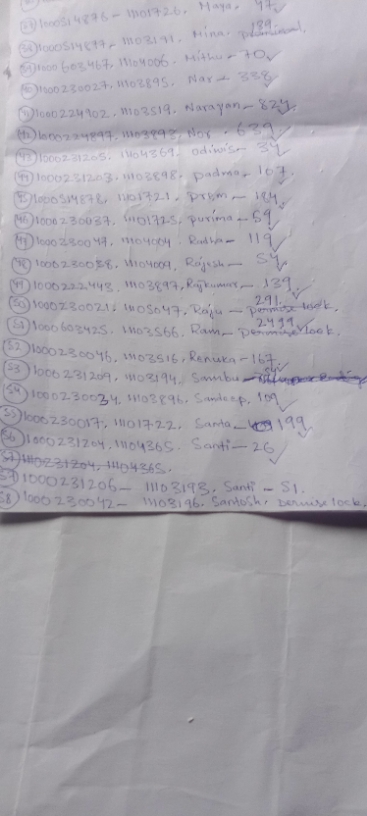 1000514876 - 11101726. Maya. 47 ✓
139
1000514877 - 11103171. Mina.
1000603467. 11104006. Mithu - 70 ✓
1000230027. 11103895. Nar - 338
1000224902. 11103519. Narayan - 824 ✓
1000224897. 11103893. Nor - 639 ✓
(43) 1000231205. 11104369. Odiwis - 34 ✓
(44) 1000231203. 11103898. padma - 167.
(45) 1000514878. 11101721. prem - 184 ✓
(46) 1000230037. 11101723. purima - 59 ✓
(47) 1000230047. 11104004. Radha - 119 ✓
(48) 1000230058. 11104009. Rajesh - 54 ✓
(49) 1000222443. 11103897. Rajkumar - 139.
291. ✓
(50) 1000230021. 11105047. Raju - permise lock.
2499
(51) 1000603425. 11103566. Ram - permise lock.
(52) 1000230046. 11103516. Renuka - 167 ✓
(53) 1000231209. 11103194. Sambu -
(54) 1000230034. 11103896. Sandeep. 109 ✓
(55) 1000230017. 11101722. Santa - 199 ✓
(56) 1000231204. 11104365. Santi - 26 ✓
(57) 1110231204. 11104365.
(57) 1000231206 - 11103193. Santi - 51.
(58) 1000230042 - 11103196. Santosh. permise lock.